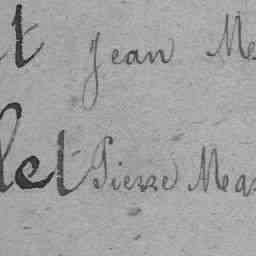 t Jean Me
let Pierre Mar